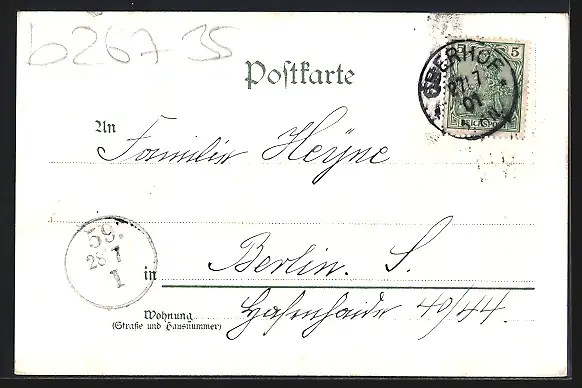 b267 35
5 5
OBERHOF
27.7
01
REICHSPOST
Postkarte
An
Familie Heyne
59.
28 7
1
in
Berlin. S.
Wohnung
(Straße und Hausnummer)
Hasenhaide 40/44.